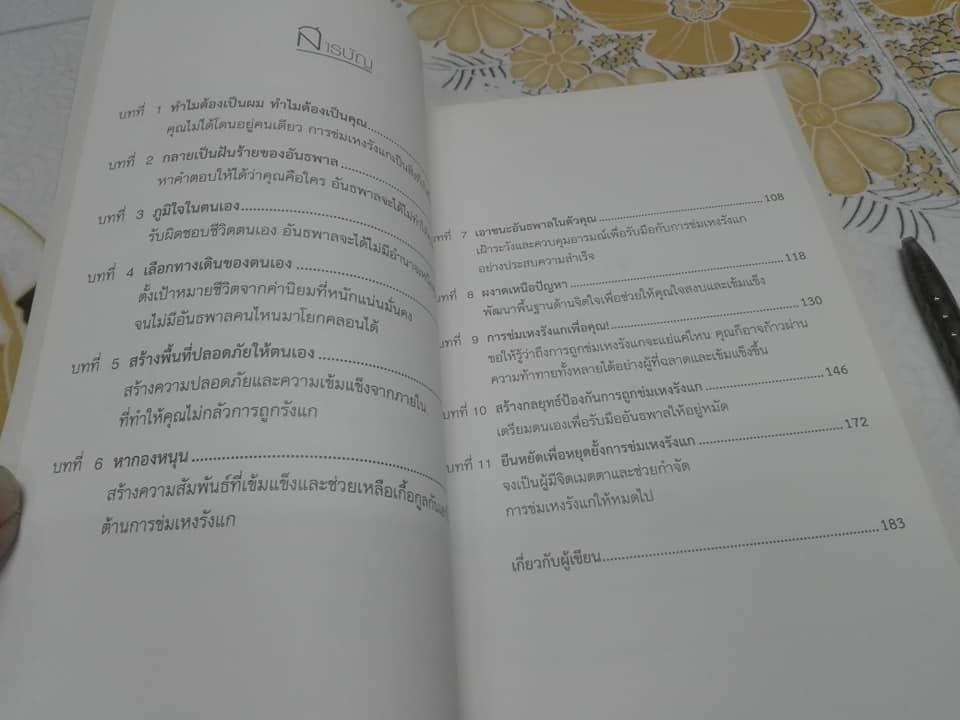 สารบัญ
บทที่ 1 ทำไมต้องเป็นผม ทำไมต้องเป็นคุณ
คุณไม่ได้โดนอยู่คนเดียว การข่มเหงรังแกเป็นสิ่งที่
บทที่ 2 กลายเป็นฝันร้ายของอันธพาล
หาคำตอบให้ได้ว่าคุณคือใคร อันธพาลจะได้ไม่
บทที่ 3 ภูมิใจในตนเอง
รับผิดชอบชีวิตตนเอง อันธพาลจะได้ไม่มีอำนาจ
บทที่ 4 เลือกทางเดินของตนเอง
ตั้งเป้าหมายชีวิตจากค่านิยมที่หนักแน่นมั่นคง
จนไม่มีอันธพาลคนไหนมาโยกคลอนได้
บทที่ 5 สร้างพื้นที่ปลอดภัยให้ตนเอง
สร้างความปลอดภัยและความเข้มแข็งจากภายใน
ที่ทำให้คุณไม่กลัวการถูกรังแก
บทที่ 6 หากองหนุน
สร้างความสัมพันธ์ที่เข้มแข็งและช่วยเหลือเกื้อกูลกัน
ต้านการข่มเหงรังแก
บทที่ 7 เอาชนะอันธพาลในตัวคุณ 108
เฝ้าระวังและควบคุมอารมณ์เพื่อรับมือกับการข่มเหงรังแก
อย่างประสบความสำเร็จ
บทที่ 8 ผงาดเหนือปัญหา 118
พัฒนาพื้นฐานด้านจิตใจเพื่อช่วยให้คุณใจสงบและเข้มแข็ง
บทที่ 9 การข่มเหงรังแกเพื่อคุณ! 130
ขอให้รู้ว่าถึงการถูกข่มเหงรังแกจะแย่แค่ไหน คุณก็อาจก้าวผ่าน
ความท้าทายทั้งหลายได้อย่างผู้ที่ฉลาดและเข้มแข็งขึ้น
บทที่ 10 สร้างกลยุทธ์ป้องกันการถูกข่มเหงรังแก 146
เตรียมตนเองเพื่อรับมืออันธพาลให้อยู่หมัด
บทที่ 11 ยืนหยัดเพื่อหยุดยั้งการข่มเหงรังแก 172
จงเป็นผู้มีจิตเมตตาและช่วยกำจัด
การข่มเหงรังแกให้หมดไป
เกี่ยวกับผู้เขียน 183